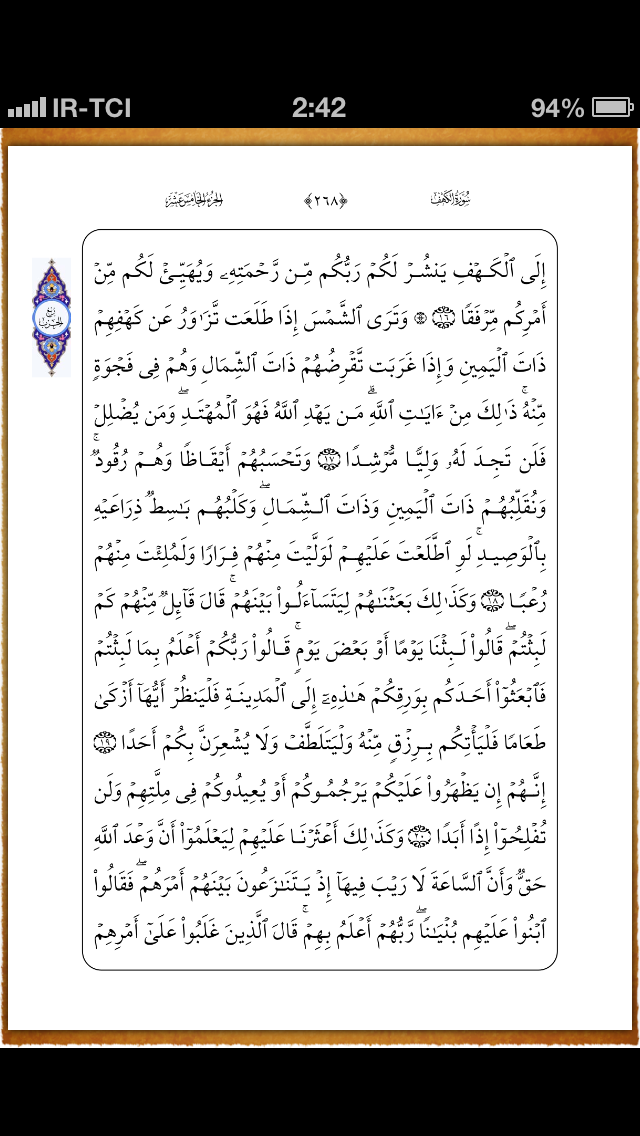 IR-TCI 2:42 94%
سُورَةُ الكَهْفِ ﴿٢٦٨﴾ الجُزْءُ الخَامِسَ عَشَرَ
إِلَى ٱلۡكَهۡفِ يَنشُرۡ لَكُمۡ رَبُّكُم مِّن رَّحۡمَتِهِۦ وَيُهَيِّئۡ لَكُم مِّنۡ
أَمۡرِكُم مِّرۡفَقٗا ١٦ ۞ وَتَرَى ٱلشَّمۡسَ إِذَا طَلَعَت تَّزَٰوَرُ عَن كَهۡفِهِمۡ
ذَاتَ ٱلۡيَمِينِ وَإِذَا غَرَبَت تَّقۡرِضُهُمۡ ذَاتَ ٱلشِّمَالِ وَهُمۡ فِي فَجۡوَةٖ
مِّنۡهُۚ ذَٰلِكَ مِنۡ ءَايَٰتِ ٱللَّهِۗ مَن يَهۡدِ ٱللَّهُ فَهُوَ ٱلۡمُهۡتَدِۖ وَمَن يُضۡلِلۡ
فَلَن تَجِدَ لَهُۥ وَلِيّٗا مُّرۡشِدٗا ١٧ وَتَحۡسَبُهُمۡ أَيۡقَاظٗا وَهُمۡ رُقُودٞۚ
وَنُقَلِّبُهُمۡ ذَاتَ ٱلۡيَمِينِ وَذَاتَ ٱلشِّمَالِۖ وَكَلۡبُهُم بَٰسِطٞ ذِرَاعَيۡهِ
بِٱلۡوَصِيدِۚ لَوِ ٱطَّلَعۡتَ عَلَيۡهِمۡ لَوَلَّيۡتَ مِنۡهُمۡ فِرَارٗا وَلَمُلِئۡتَ مِنۡهُمۡ
رُعۡبٗا ١٨ وَكَذَٰلِكَ بَعَثۡنَٰهُمۡ لِيَتَسَآءَلُواْ بَيۡنَهُمۡۚ قَالَ قَآئِلٞ مِّنۡهُمۡ كَمۡ
لَبِثۡتُمۡۖ قَالُواْ لَبِثۡنَا يَوۡمًا أَوۡ بَعۡضَ يَوۡمٖۚ قَالُواْ رَبُّكُمۡ أَعۡلَمُ بِمَا لَبِثۡتُمۡ
فَٱبۡعَثُوٓاْ أَحَدَكُم بِوَرِقِكُمۡ هَٰذِهِۦٓ إِلَى ٱلۡمَدِينَةِ فَلۡيَنظُرۡ أَيُّهَآ أَزۡكَىٰ
طَعَامٗا فَلۡيَأۡتِكُم بِرِزۡقٖ مِّنۡهُ وَلۡيَتَلَطَّفۡ وَلَا يُشۡعِرَنَّ بِكُمۡ أَحَدًا ١٩
إِنَّهُمۡ إِن يَظۡهَرُواْ عَلَيۡكُمۡ يَرۡجُمُوكُمۡ أَوۡ يُعِيدُوكُمۡ فِي مِلَّتِهِمۡ وَلَن
تُفۡلِحُوٓاْ إِذًا أَبَدٗا ٢٠ وَكَذَٰلِكَ أَعۡثَرۡنَا عَلَيۡهِمۡ لِيَعۡلَمُوٓاْ أَنَّ وَعۡدَ ٱللَّهِ
حَقّٞ وَأَنَّ ٱلسَّاعَةَ لَا رَيۡبَ فِيهَآ إِذۡ يَتَنَٰزَعُونَ بَيۡنَهُمۡ أَمۡرَهُمۡۖ فَقَالُواْ
ٱبۡنُواْ عَلَيۡهِم بُنۡيَٰنٗاۖ رَّبُّهُمۡ أَعۡلَمُ بِهِمۡۚ قَالَ ٱلَّذِينَ غَلَبُواْ عَلَىٰٓ أَمۡرِهِمۡ